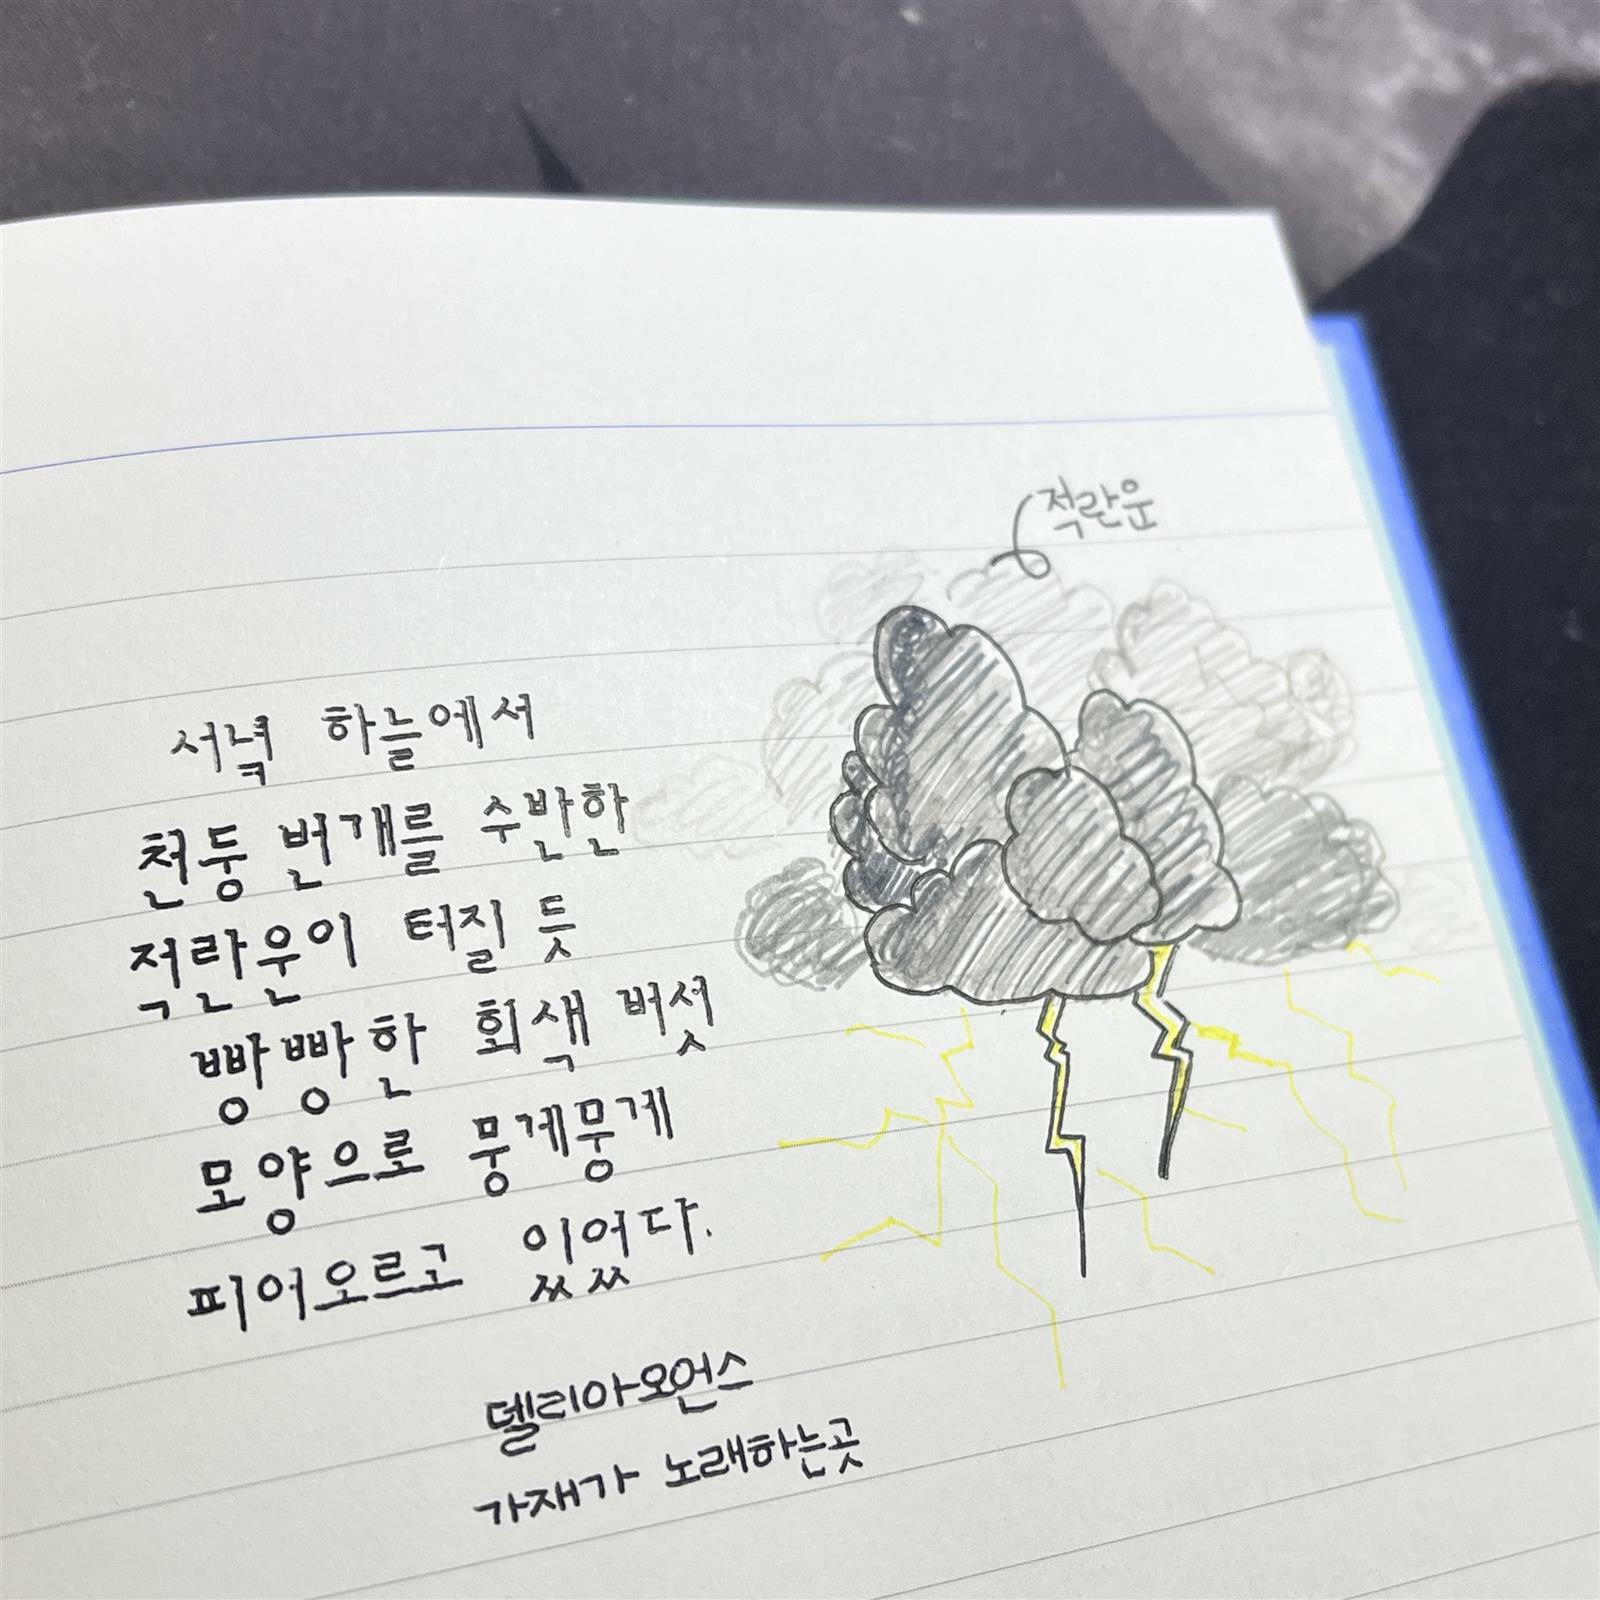 적란운
서녘 하늘에서
천둥 번개를 수반한
적란운이 터질 듯
빵빵한 회색 버섯
모양으로 뭉게뭉게
피어오르고 있었다.
델리아오언스
가재가 노래하는곳